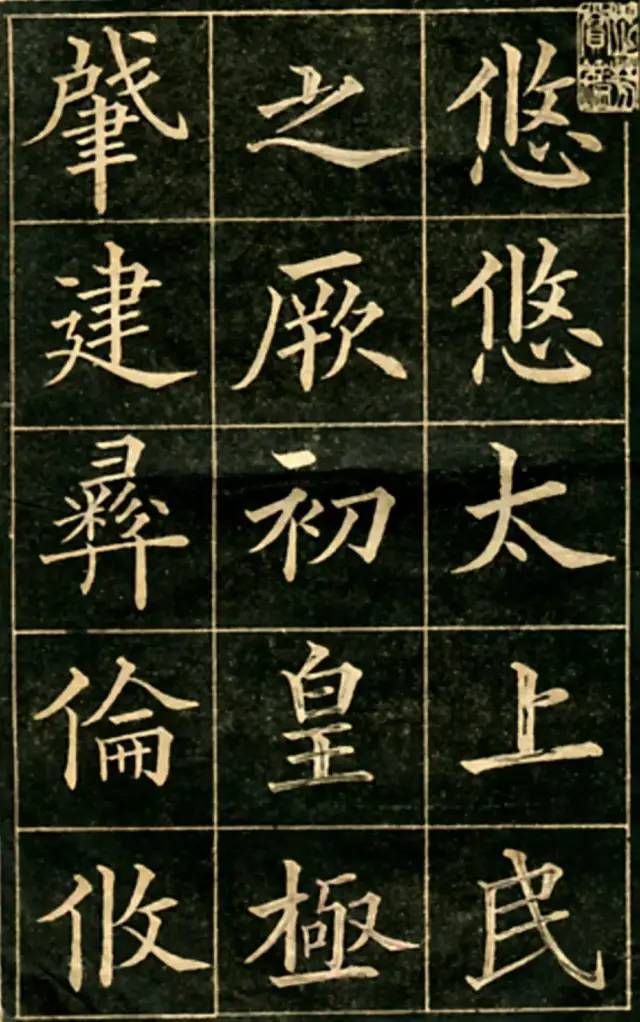 悠悠太上民
之厥初皇極
肇建彝倫攸